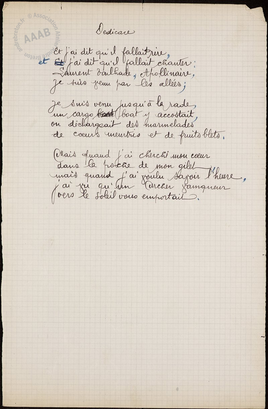 Dédicace
Et j'ai dit qu'il fallait rire,
et j'ai dit qu'il fallait chanter;
Laurent Tailhade, Apollinaire,
je suis venu par les allées;
je suis venu jusqu'à la rade,
un cargo boat y accostait,
on déchargeait des marmelades
de cœurs meurtris et de fruits blets.
Mais quand j'ai cherché mon cœur
dans la poche de mon gilet
mais quand j'ai voulu savoir l'heure,
j'ai vu qu'un larcin vainqueur
vers le soleil vous emportait.
AAAB